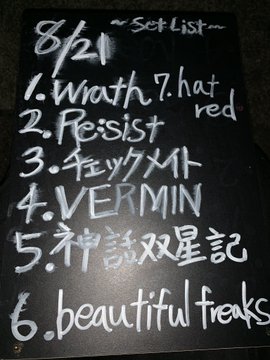 8/21 ~Set List~
1. Wrath
2. Re:sist
3. チェックメイト
4. VERMIN
5. 神話双星記
6. beautiful freaks
7. hatred